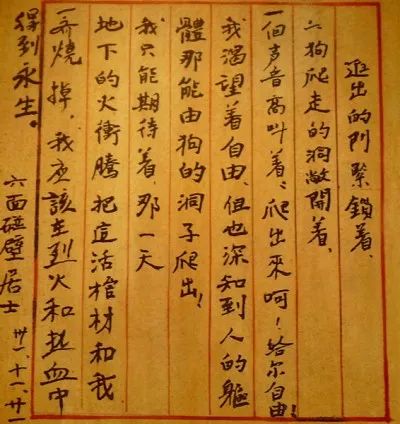 進出的门緊鎖着、
狗爬走的洞敞開着、
一個声音高叫着、爬出來呵！給尔自由！
我渴望着自由、但也深知到人的軀
體那能由狗的洞子爬出！
我只能期待着、那一天
地下的火衝騰把這活棺材和我
一齐燒掉，我应該在烈火和热血中
得到永生。
六面碰壁居士 卅一、十一、廿一